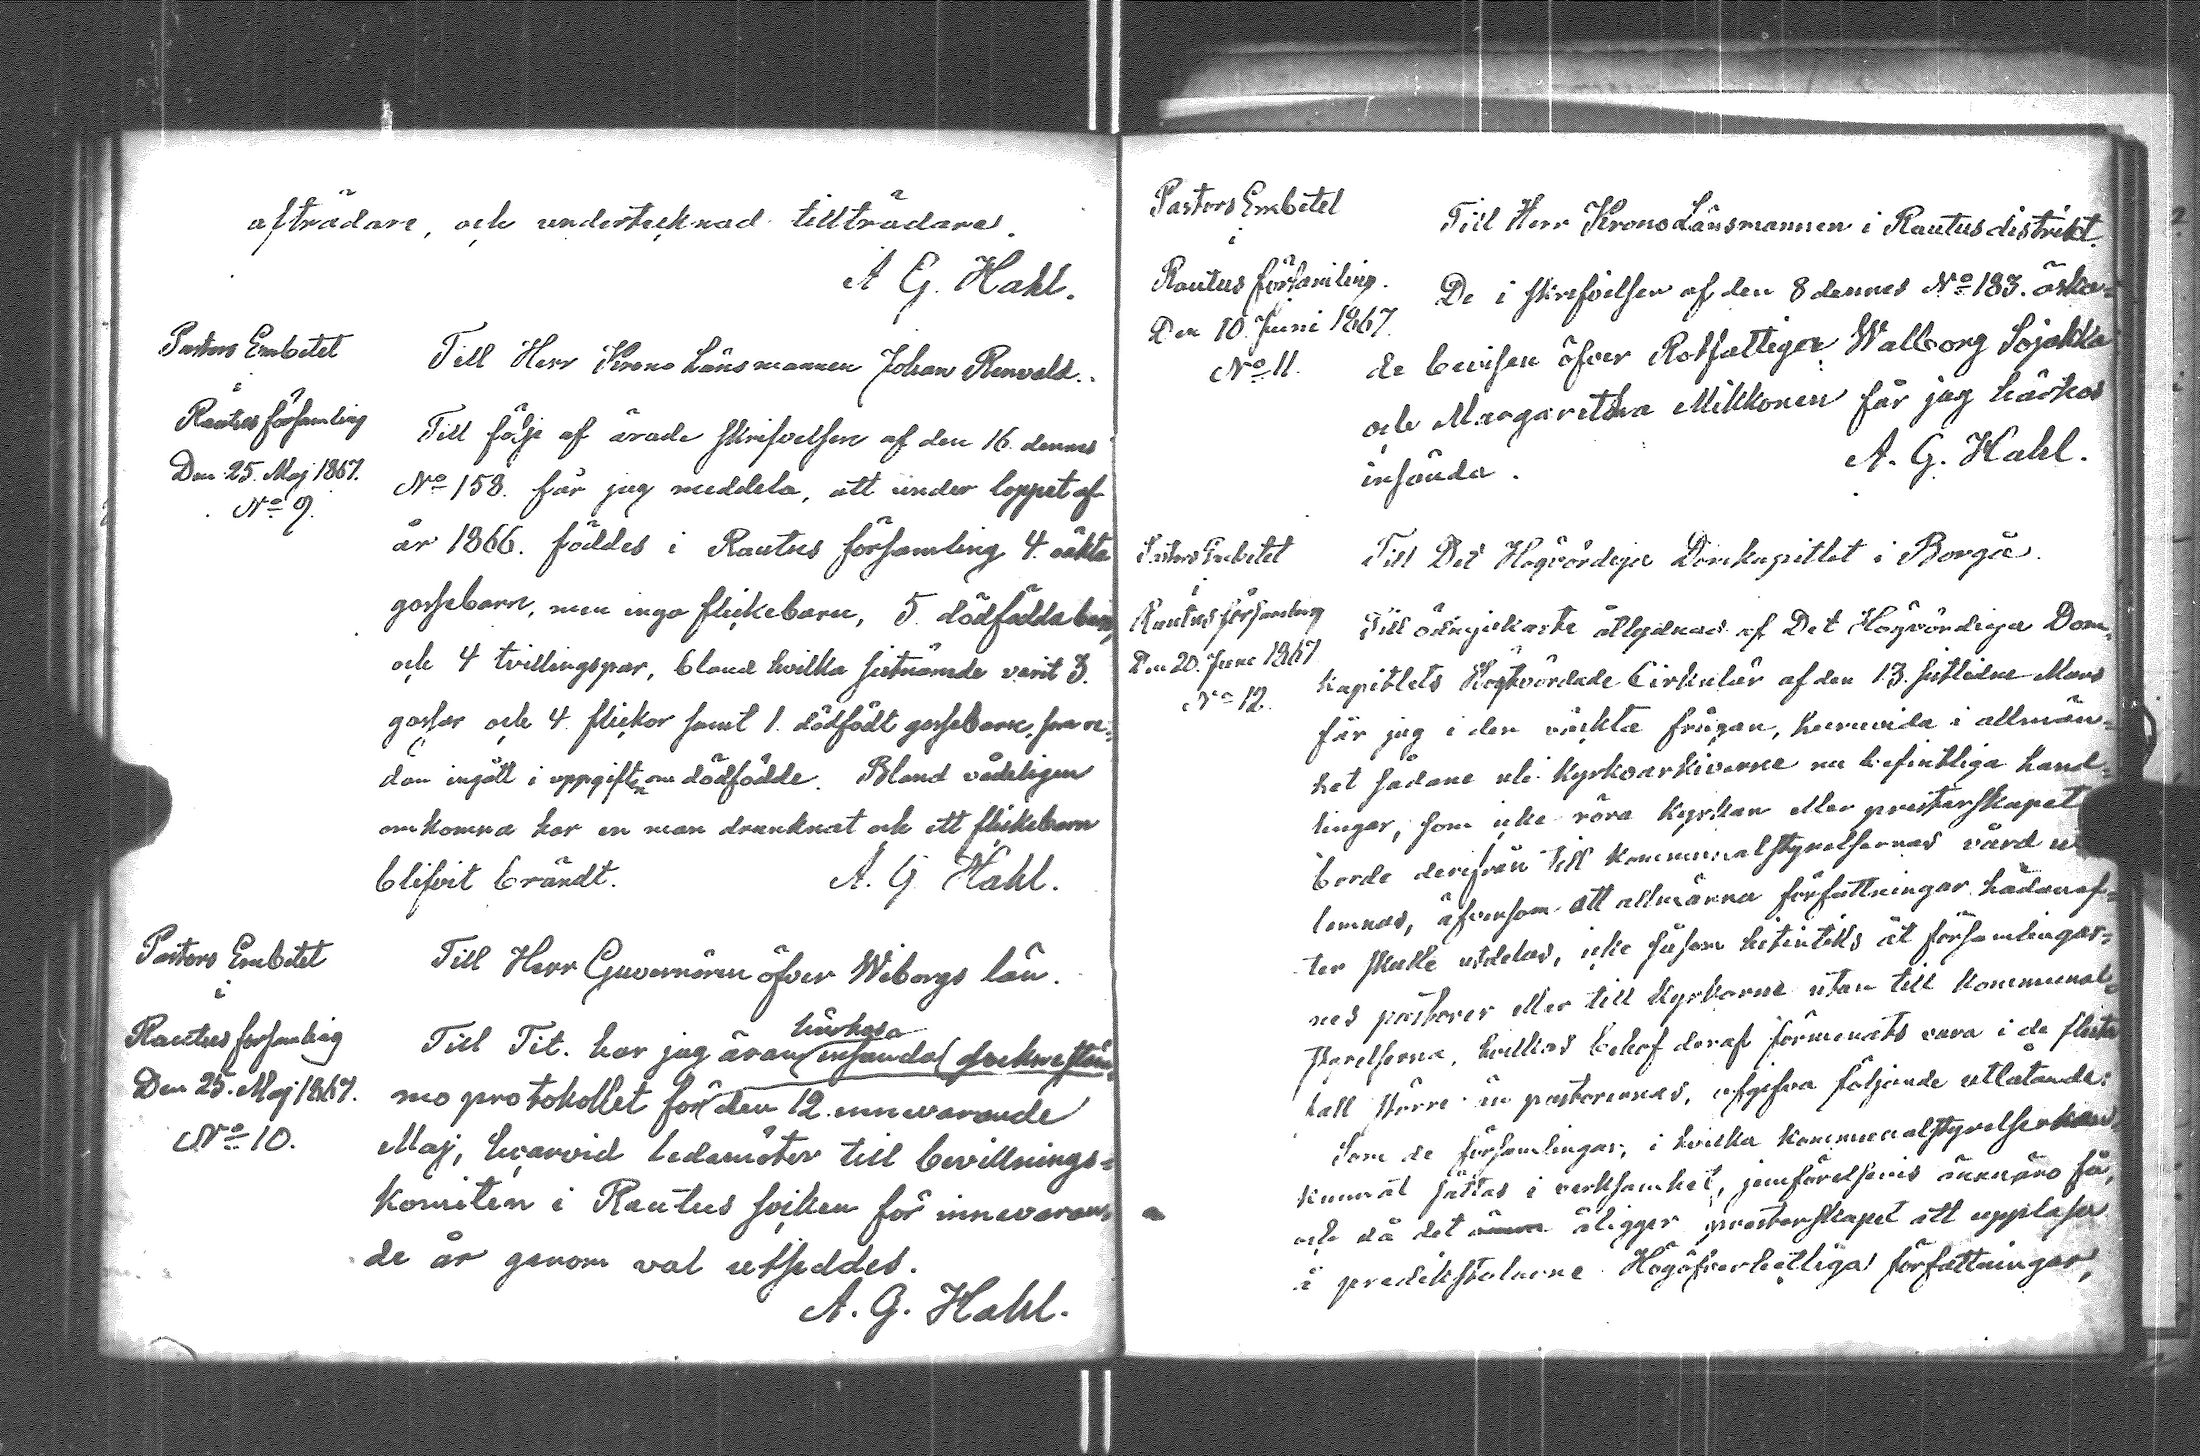 afträdare, och undertecknad tillträdares.
A G. Hahl.
Pastors Embetet
i
Rautus församling
Den 25. Maj 1867.
No 9.
Till Herr Krono Länsmannen Johan Renvald.
Till följe af ärade skrifvelsen af den 16. dennes
No 158. får jag meddela, att under loppet af
år 1866. föddes i Rautus församling 4. oäkta
gossebarn, men inga flickebarn, 5. dödfödda barn,
och 4 tvillingspar, bland hvilka sistnämde varit 3.
gossar och 4. flickor samt 1. dödfödt gossebarn, som re-
dan ingått i uppgiften om dödfödde. Bland vådeligen
omkomna har en man drunknat och ett flickebarn
blifvit brändt.
A. G. Hahl.
Pastors Embetet
i
Rautus församling
Den 25. Maj 1867.
No 10.
Till Herr Guvernören öfver Wiborgs län.
Till Tit. har jag äran härhos insända socknestäm-
mo protokollet för den 12. innevarande
Maj, hvarvid ledamöter till bevillnings-
komiten i Rautus socken för innevaran-
de år genom val utseddes.
A. G. Hahl.
Pastors Embetet
i
Rautus församling.
Den 10. Juni 1867.
No 11.
Till Herr KronoLänsmannen i Rautus distrikt.
De i skrifvelsen af den 8 dennes No 183. äska-
de bevisen öfver Rotfattiga Walborg Sojakka
och Margaretha Mikkonen får jag härhos
insända.
A. G. Hahl.
Pastors Embetet
i
Rautus församling
Den 20. Juni 1867
No 12.
Till Det Högvördiga Domkapitlet i Borgå.
Till ödmjukaste åtlydnad af Det Högvördiga Dom-
kapitlets Högtvördade Cirkulär af den 13. sistlidne Mars
får jag i den väckta frågan, huruvida i allmän-
het sådane uti kyrkoarkiverne nu befintliga hand-
lingar, som icke röra kyrkan eller presterskapet
borde derifrån till kommunalstyrelsernas vård
lemnas, äfvensom att allmänna författningar hädanef-
ter skulle utdelas, icke såsom hitintills åt församlingar-
nes pastorer eller till kyrkorne utan till kommunal-
styrelserna, hvilkas behof deraf förmenats vara i de flesta
fall större än pastorernas, afgifva följande utlåtande:
Som de församlingar, i hvilka kommunalstyrelser
kunnat sättas i verksamhet, jemförelsevis ännu äro få,
och då det åligger presterskapet att uppläsa
i predikstolarne Högöfverhetliga författningar,